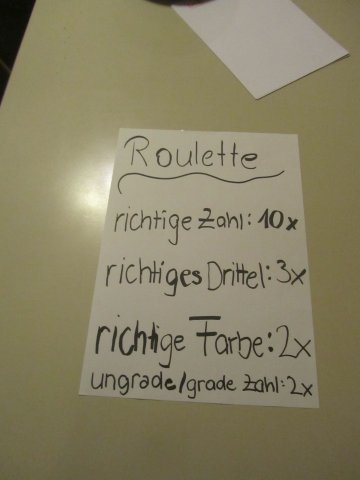 Roulette
richtige Zahl: 10x
richtiges Drittel: 3x
richtige Farbe: 2x
ungrade/grade Zahl: 2x